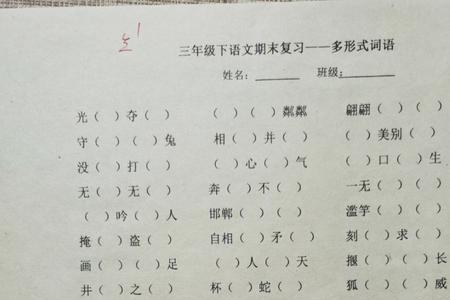 三年级下语文期末复习——多形式词语
姓名：______ 班级：______
光（ ）夺（ ） （ ）（ ）粼粼 翩翩（ ）（ ）
守（ ）（ ）兔 相（ ）并（ ） （ ）美别（ ）
没（ ）打（ ） （ ）心（ ）气 （ ）口（ ）生
无（ ）无（ ） 奔（ ）不（ ） 一无（ ）（ ）
（ ）吟（ ）人 邯郸（ ）（ ） 滥竽（ ）（ ）
掩（ ）盗（ ） 自相（ ）矛（ ） 刻（ ）求（ ）
画（ ）（ ）足 （ ）人（ ）天 揠（ ）（ ）长
井（ ）之（ ） 杯（ ）蛇（ ） 狐（ ）（ ）威